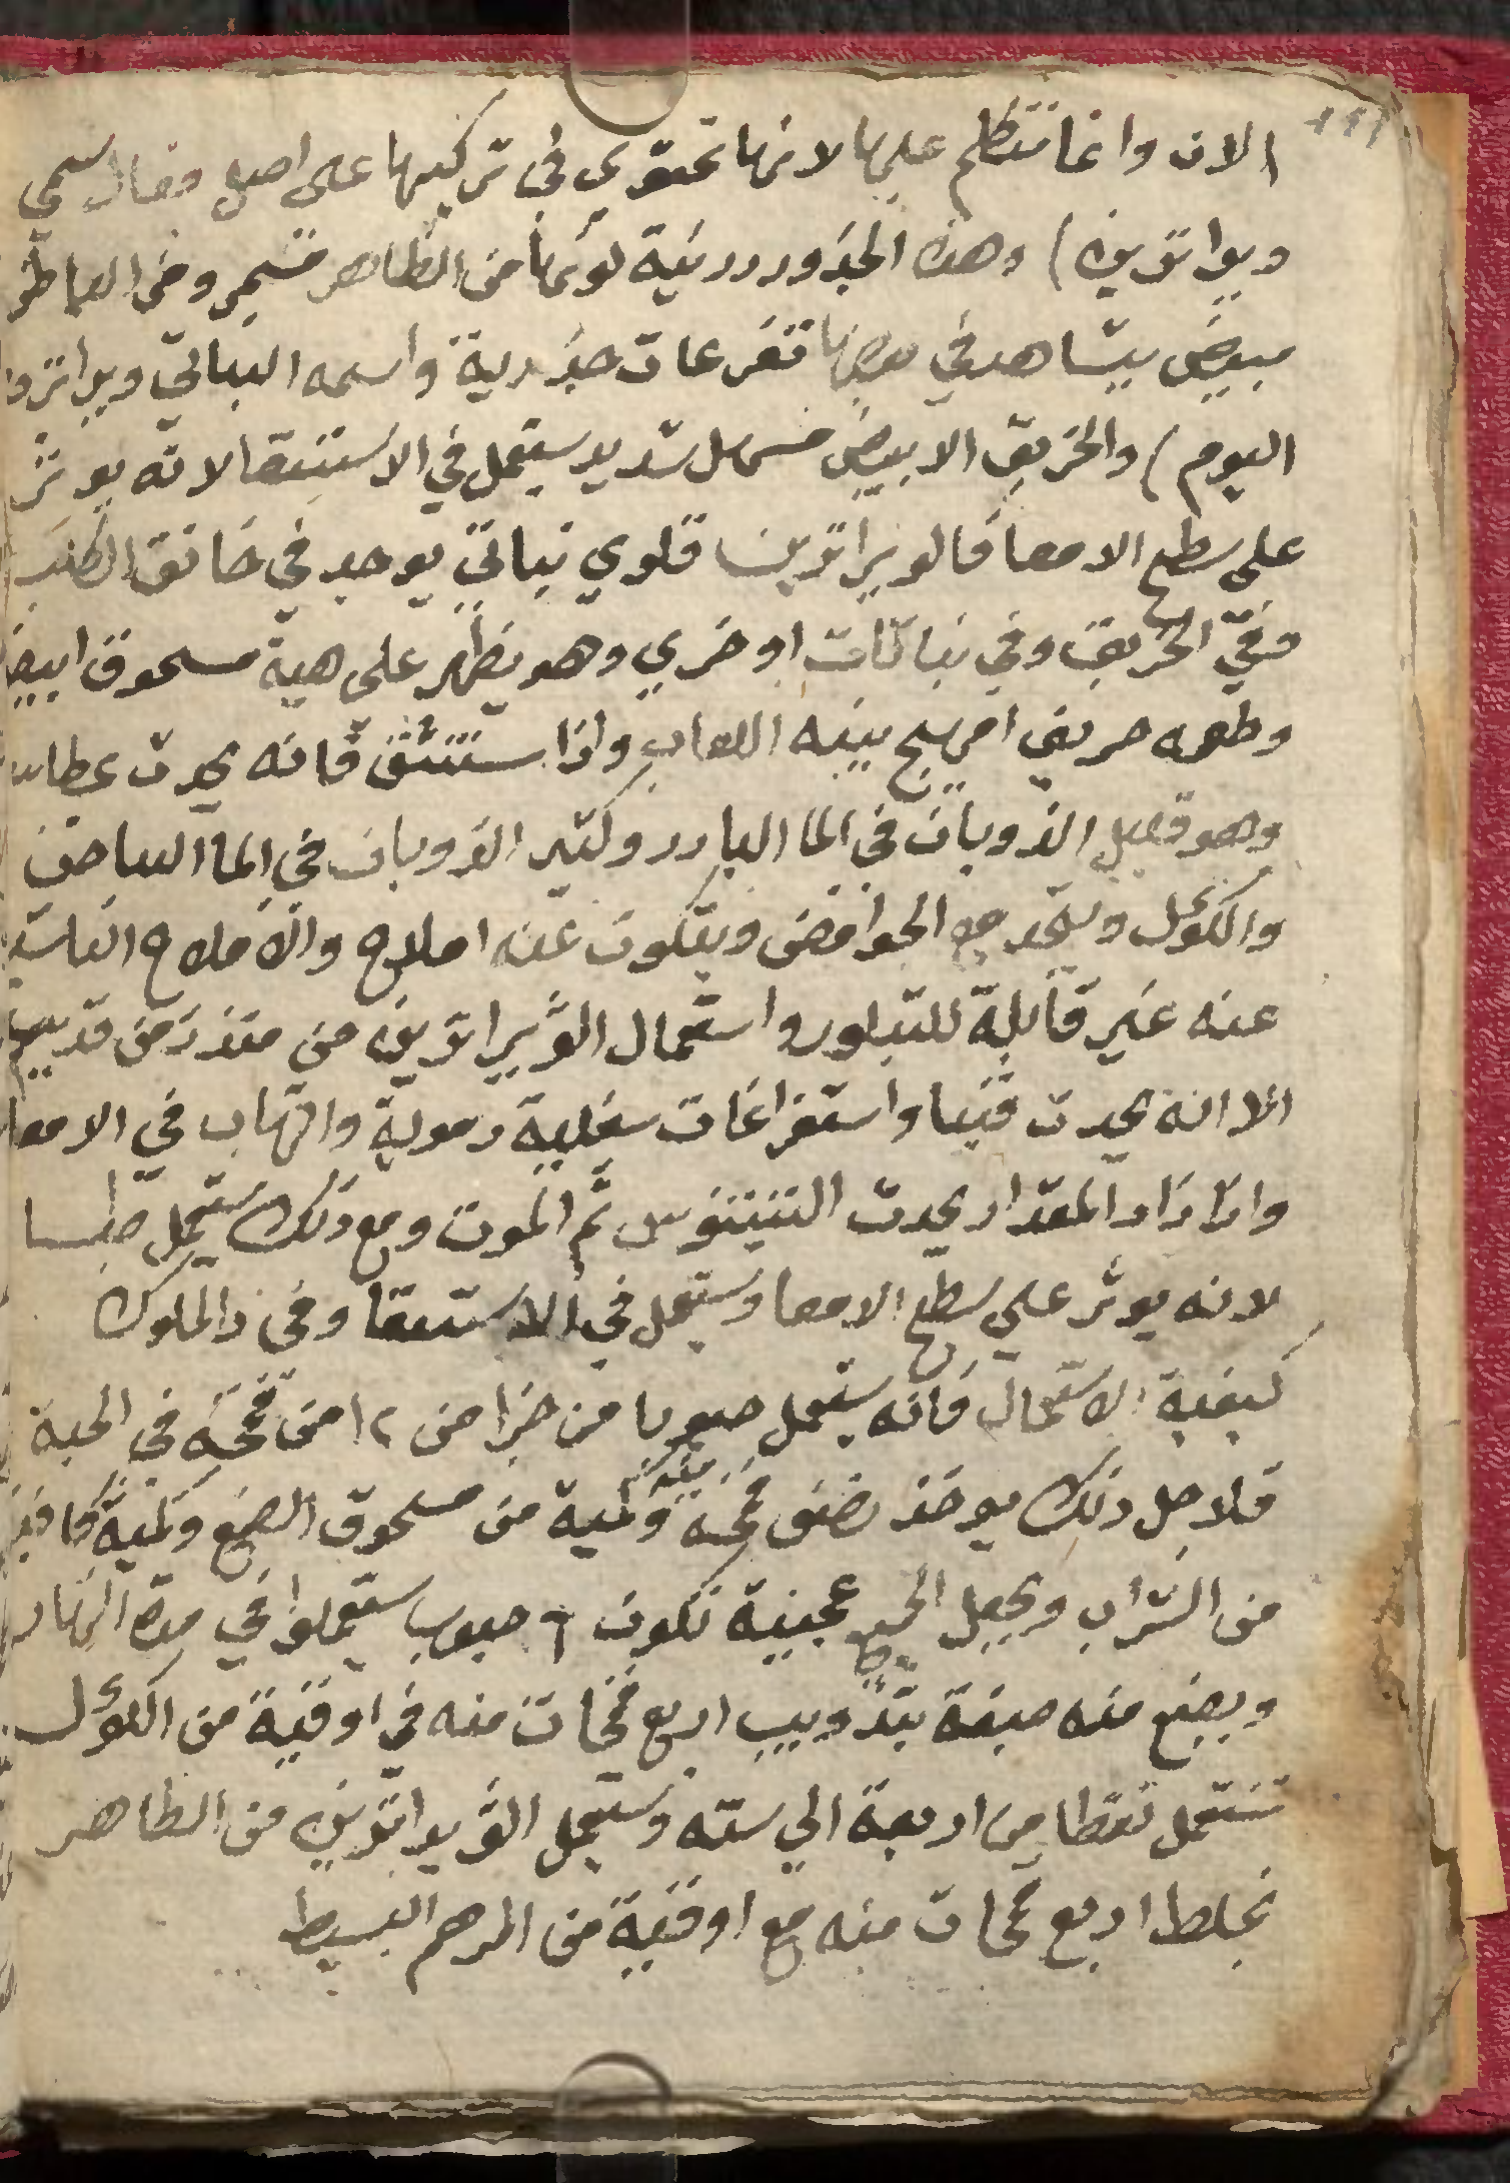 ١١١
الان وانما نتكلم عليها لانها تحتوي في تركيبها على اصل فعال سمي
ويراترين) وهذه الجذور درنية لونها من الظاهر مسمر ومن الباطن
مبيض يشاهد في بعضها تفرعات جذرية واسمه النباتي ويراتروا
اليوم) والخربق الابيض مسهل شديد يستعمل في الاستسقا لانه يوثر
على سطح الامعا فالويراترين قلوي نباتي يوجد في خانق الكلب
وفي الخربق وفي نباتات اوخري وهو يظهر على هية مسحوق ابيض
وطعمه حريف امر يهيج بينه اللعاب واذا ستنشق فانه يحدث عطاس
وهو قليل الذوبان في الما البارد وكثير الذوبان في الما الساخن
والكؤل ويتحد مع الحوامض ويتكون عنه املاح والاملاح الناشية
عنه غير قابلة للتبلور واستعمال الويراترين من منذ زمن قديم
الا انه يحدث قيا واستفراغات سفلية دموية والتهاب في الامعا
واذا زاد المقدار يحدث التيتنوس ثم الموت ومع ذلك يستعمل طبا
لانه يوثر على سطح الامعا ويستعمل في الاستسقا وفي دا الملوك
كيفية الاستعمال فانه يستعمل حبوبا من جزا من ١٢ من قمحة في الحبة
فلاجل ذلك يوخذ نصف قمحة منه وكمية من مسحوق الصمغ وكمية كافية
من الشراب ويجعل الجميع عجينة تكون ٦ حبوب يستعملوا في مدة النهار
ويصنع منه صبغة بتذويب اربع قمحات منه في اوقية من الكؤل
تستعمل نقطا من اربعة الي سته ويستعمل الويراترين من الظاهر
بخلط اربع قمحات منه مع اوقية من المرهم البسيط